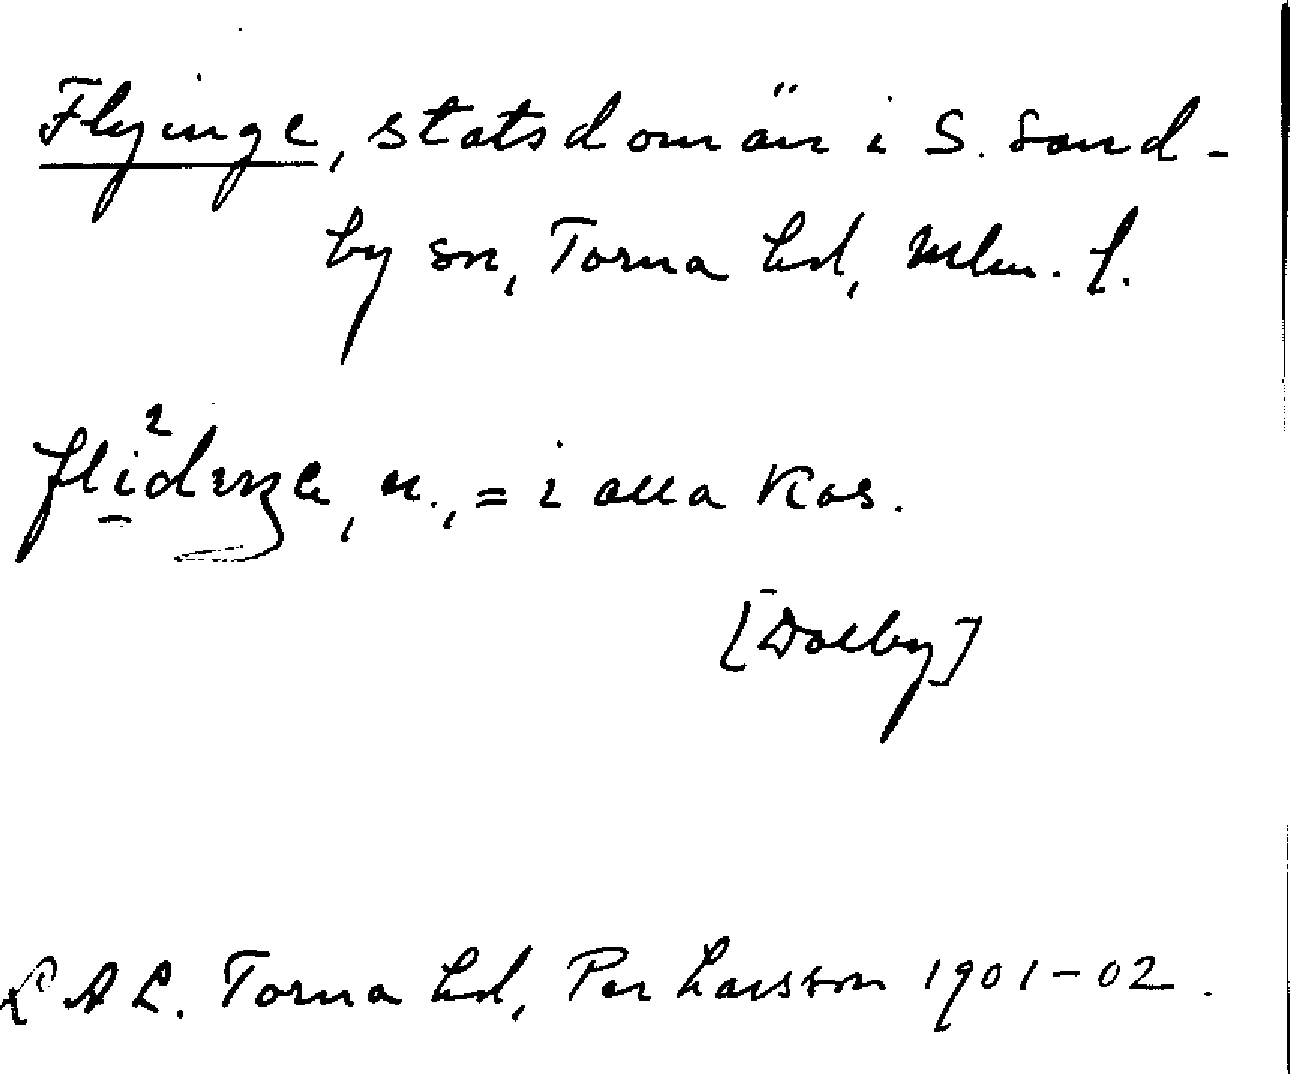 Flyinge, statsdomän i S. Sand-
by sn, Torna hd, Mlm. l.
n., = i alla kas.
[Dalby]
LAL. Torna hd, Per Larsson 1901-02.